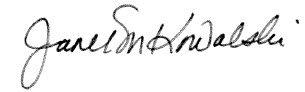 Janet M Kowalski